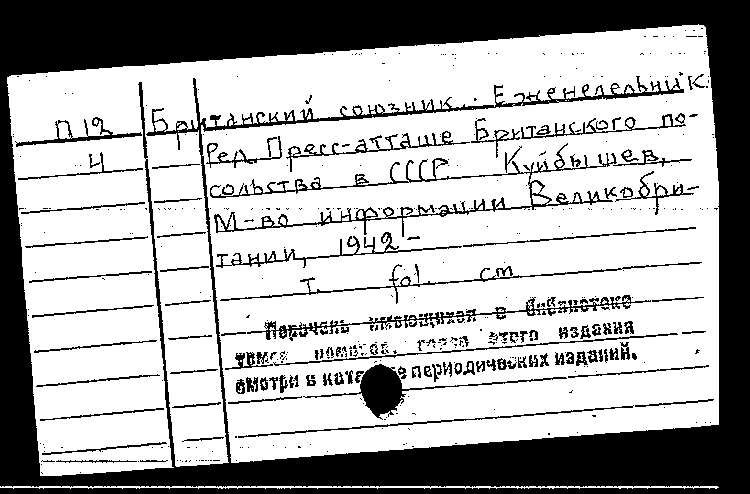 П 12 Британский союзник. Еженедельник.
Ч Ред. Пресс-атташе Британского по-
сольства в СССР Куйбышев,
М-во информации Великобри-
тании, 1942-
т. fol. cm
Перечень имеющихся в библиотеке
томов номеров, года этого издания
смотри в периодических изданий.